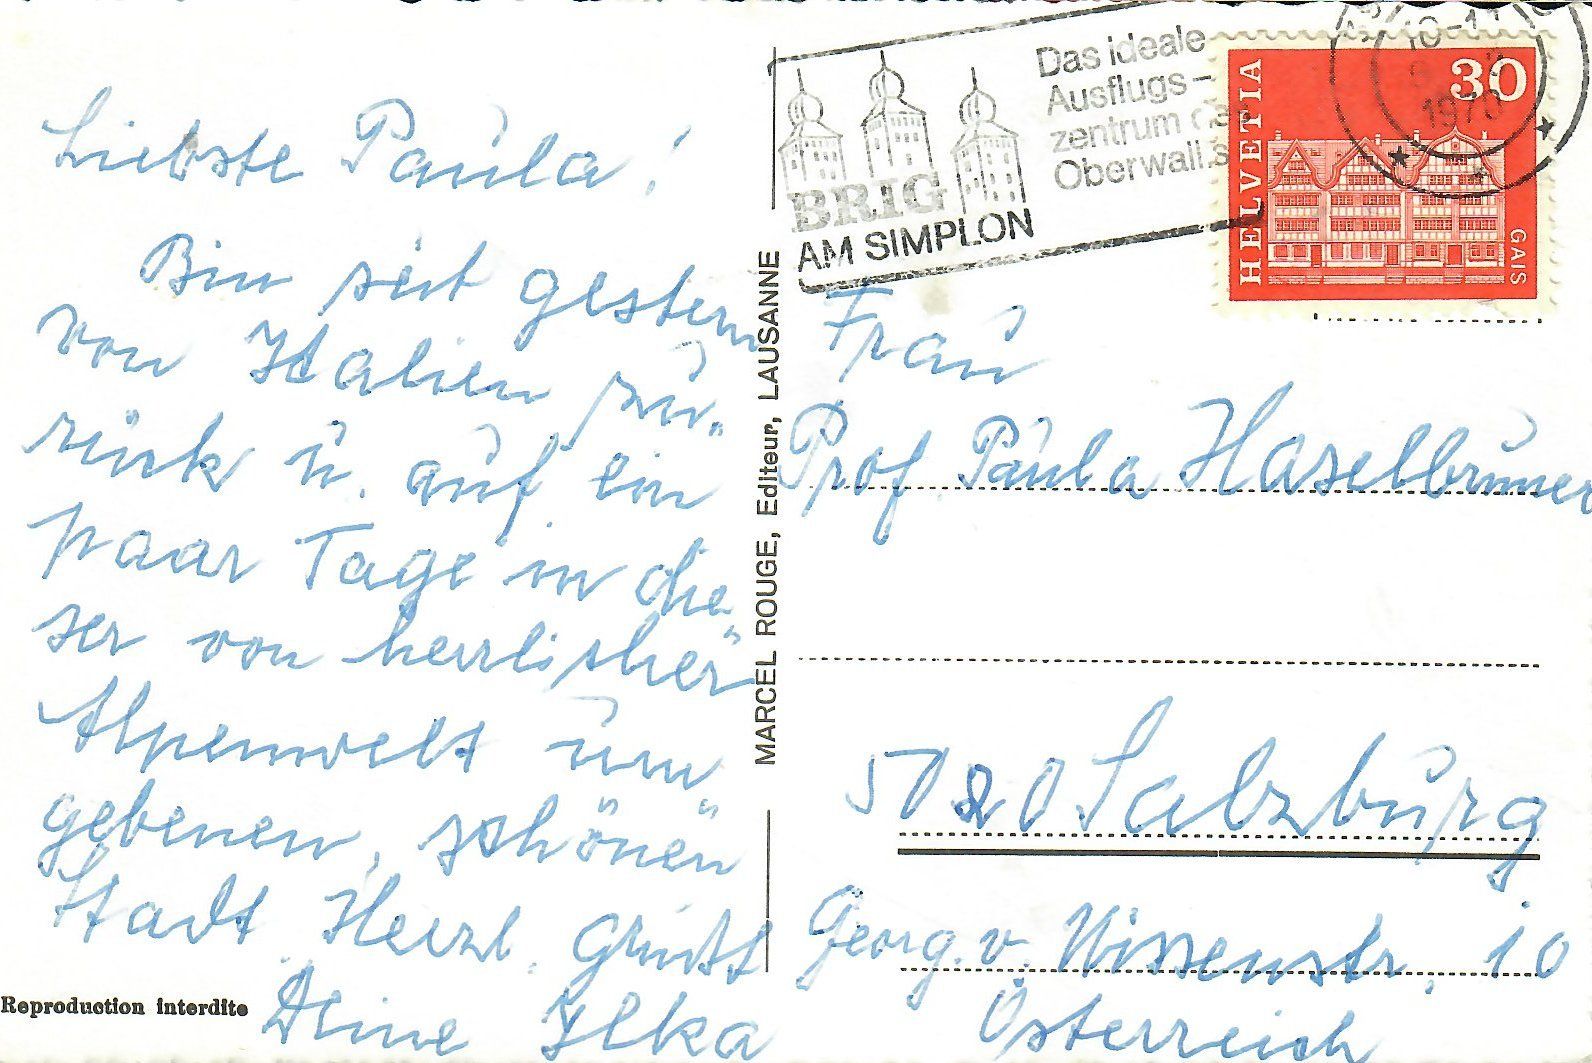 Liebste Paula!
Bin seit gestern
von Italien zu-
rück u. auf ein
paar Tage in die-
ser von herrlicher
Alpenwelt um-
gebenen, schönen
Stadt. Herzl. Grüßt
Deine Ilka
Reproduction interdite
MARCEL ROUGE, Editeur, LAUSANNE
Das ideale
Ausflugs-
zentrum des
Oberwallis
BRIG
AM SIMPLON
10-11
1970
HELVETIA
30
GAIS
Frau
Prof. Paula Haselbruner
5020 Salzburg
Georg. v. Nissenstr. 10
Österreich